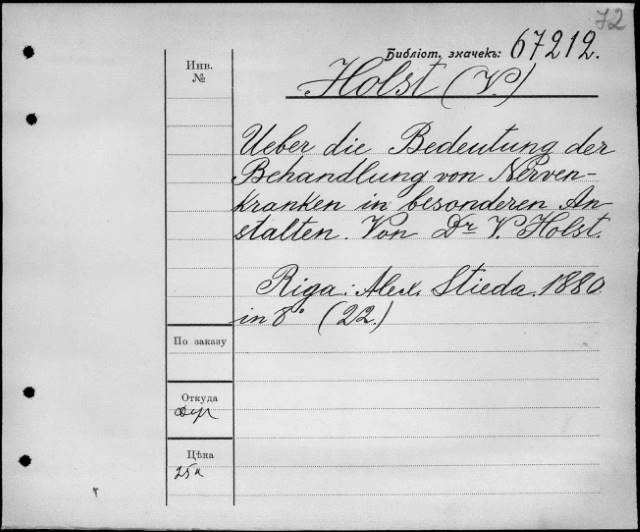 72
Библіот. значекъ: 67212.
Инв.
№
Holst (V.)
Ueber die Bedeutung der
Behandlung von Nerven-
kranken in besonderen An-
stalten. Von Dr V. Holst.
Riga: Alex. Stieda. 1880
in 8° (22.)
По заказу
Откуда
Дуп
Цѣна
25 к